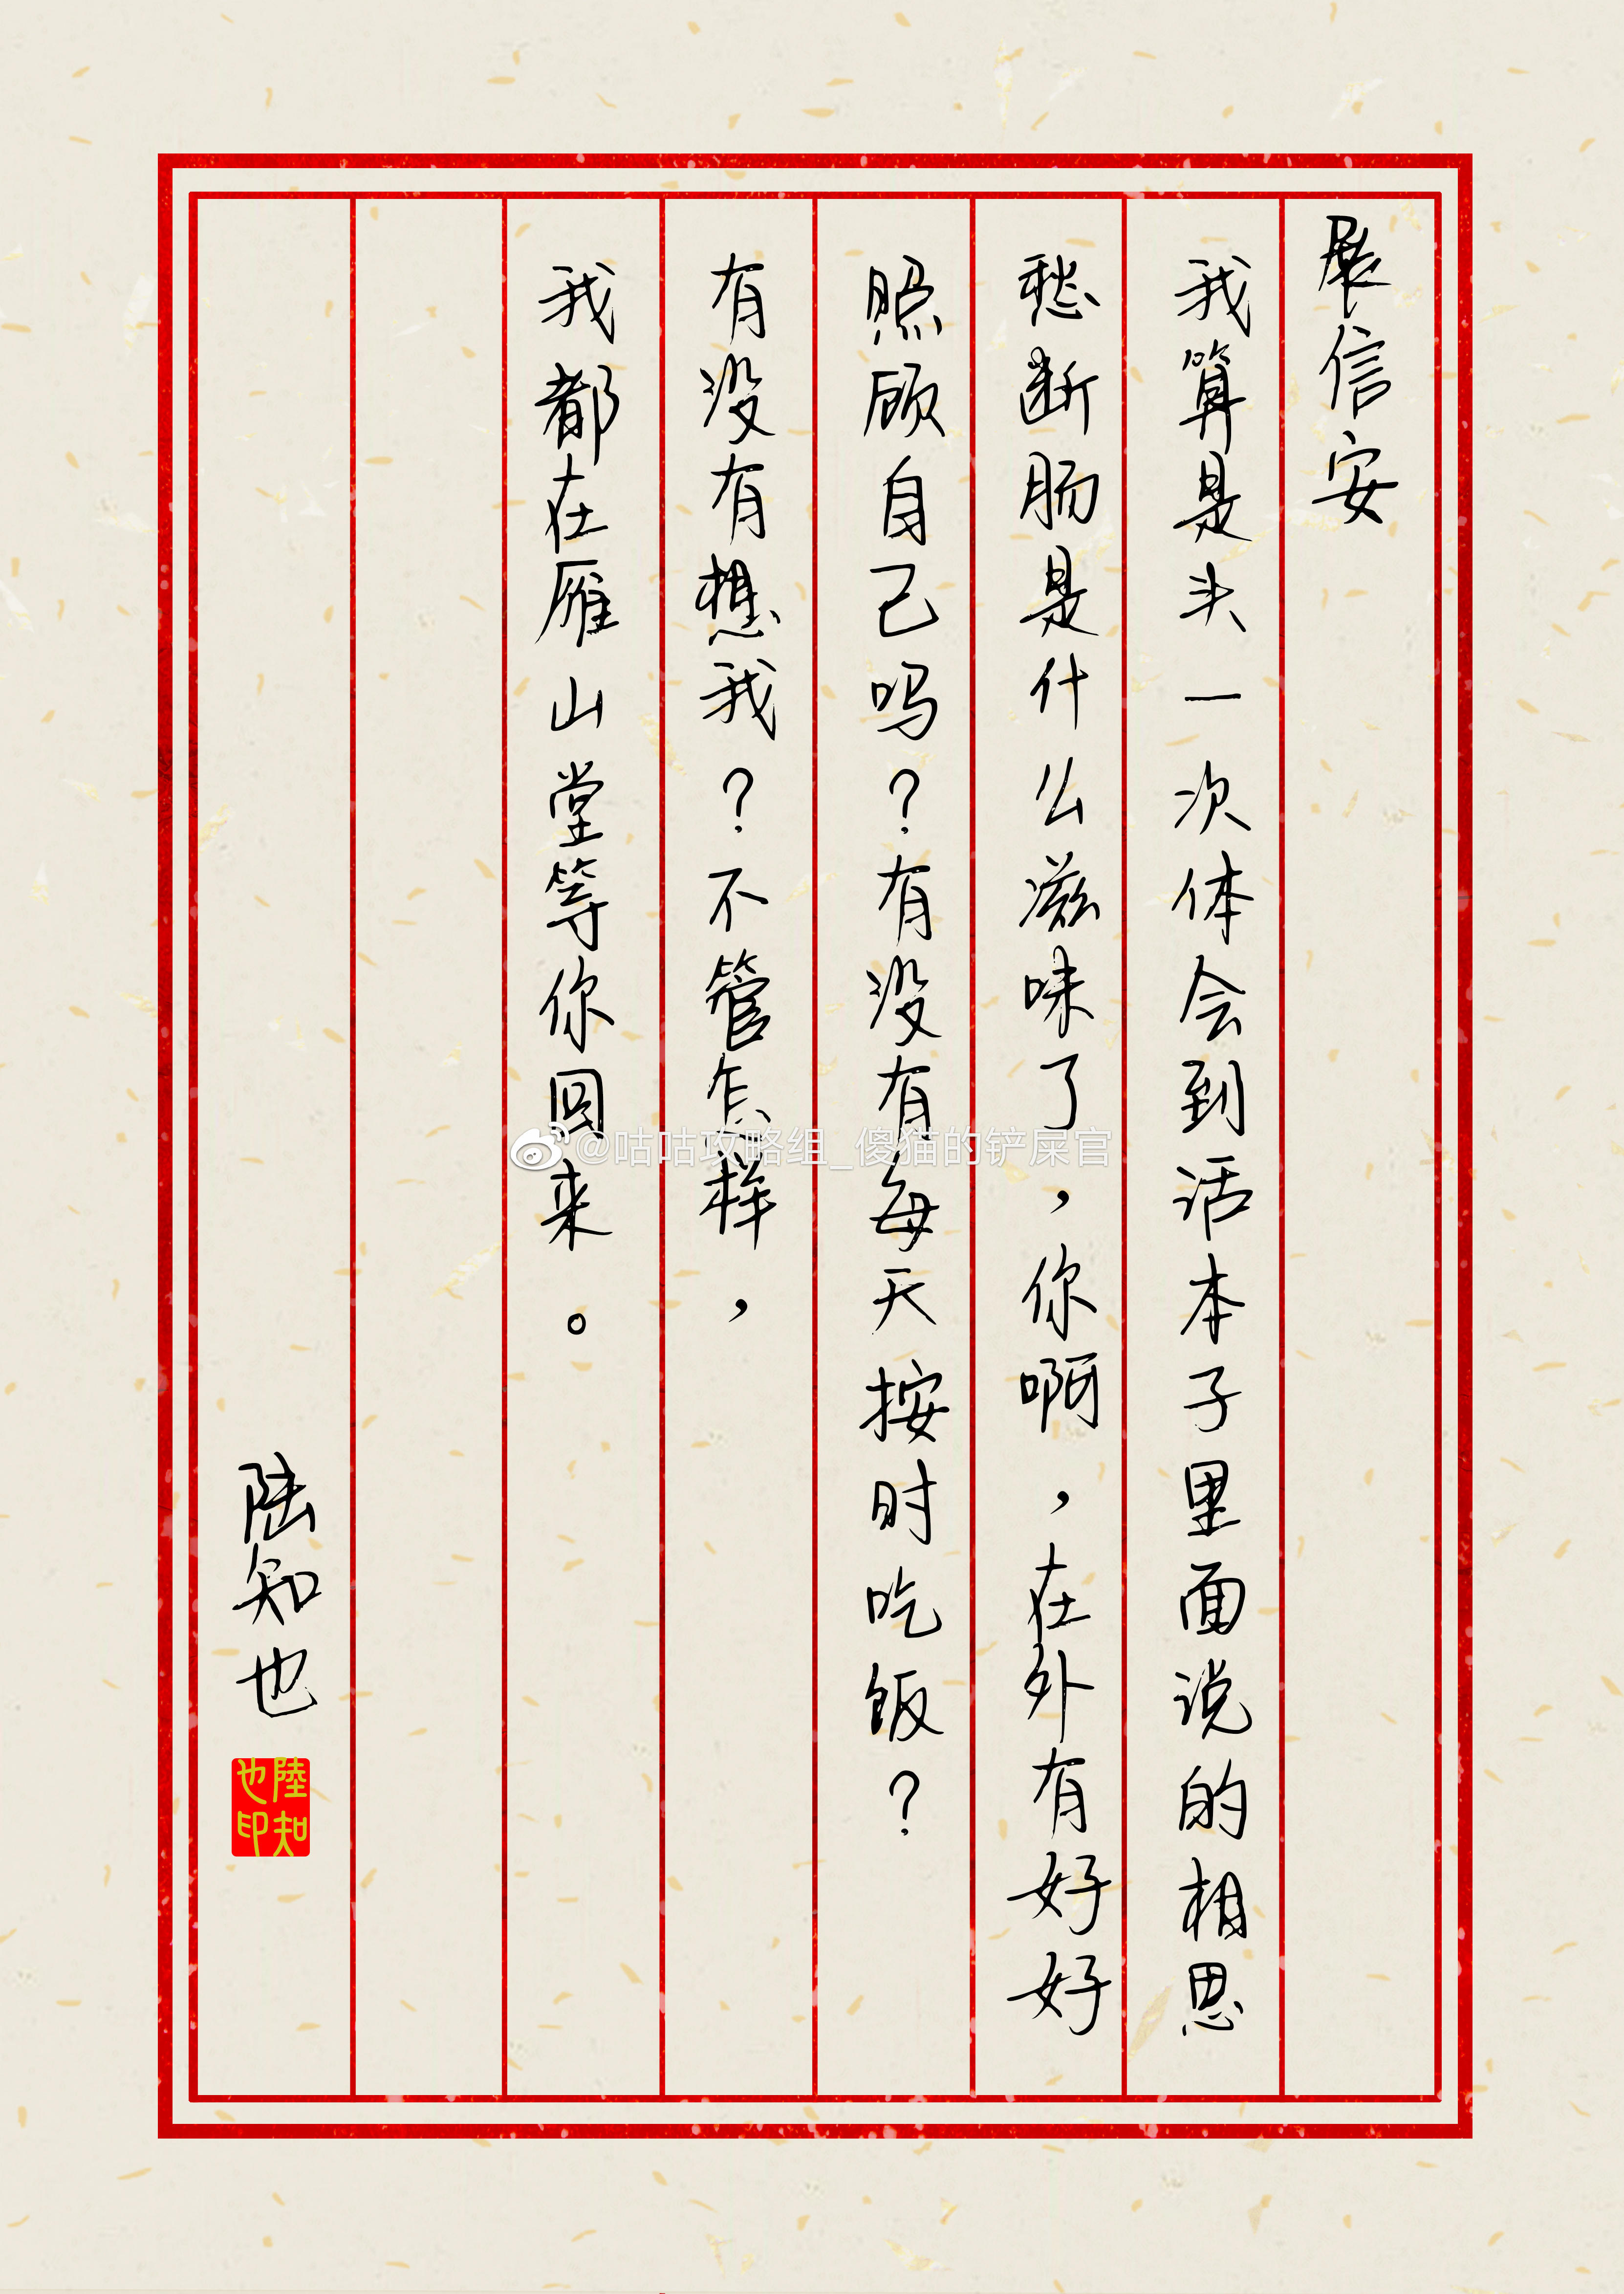 展信安
我算是头一次体会到话本子里面说的相思
愁断肠是什么滋味了，你啊，在外有好好
照顾自己吗？有没有每天按时吃饭？
有没有想我？不管怎样，
我都在雁山堂等你回来。
陆知也
陸知
也印
@咕咕攻略组_傻猫的铲屎官